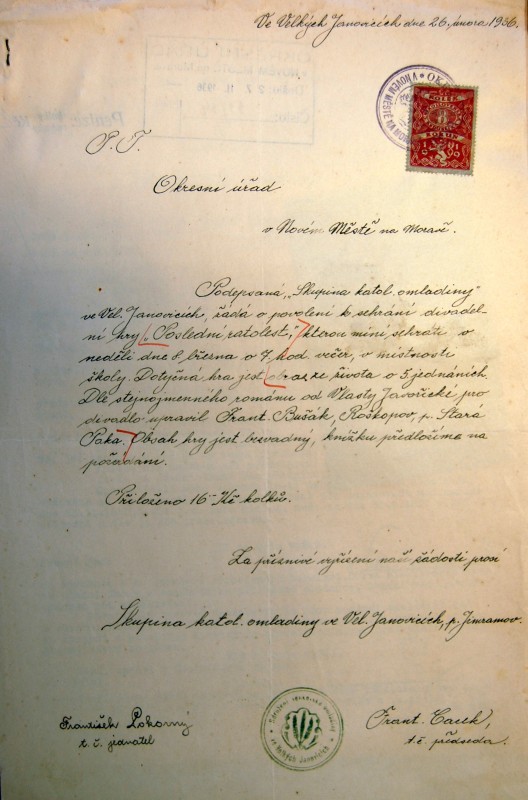 Ve Velkých Janovicích dne 26. února 1936.
P. T.
Okresní úřad
v Novém Městě na Moravě.
Podepsaná „Skupina katol. omladiny"
ve Vel. Janovicích, žádá o povolení k sehrání divadel-
ní hry „Poslední ratolest", kterou míní sehráti v
neděli dne 8. března o 7. hod. večer, v místnosti
školy. Dotyčná hra jest obraz ze života o 5 jednáních.
Dle stejnojmenného románu od Vlasty Javořické pro
divadlo upravil Frant. Bušák, Roškopov, p. Stará
Paka. Obsah hry jest bezvadný, knížku předložíme na
požádání.
Přiloženo 16 Kč kolků.
Za příznivé vyřízení naší žádosti prosí
Skupina katol. omladiny ve Vel. Janovicích, p. Jimramov.
František Pokorný
t. č. jednatel
Frant.
t. č. předseda.
KOLEK
8
KORUN
V NOVÉM MĚSTĚ NA MOR
ve Velkých Janovicích